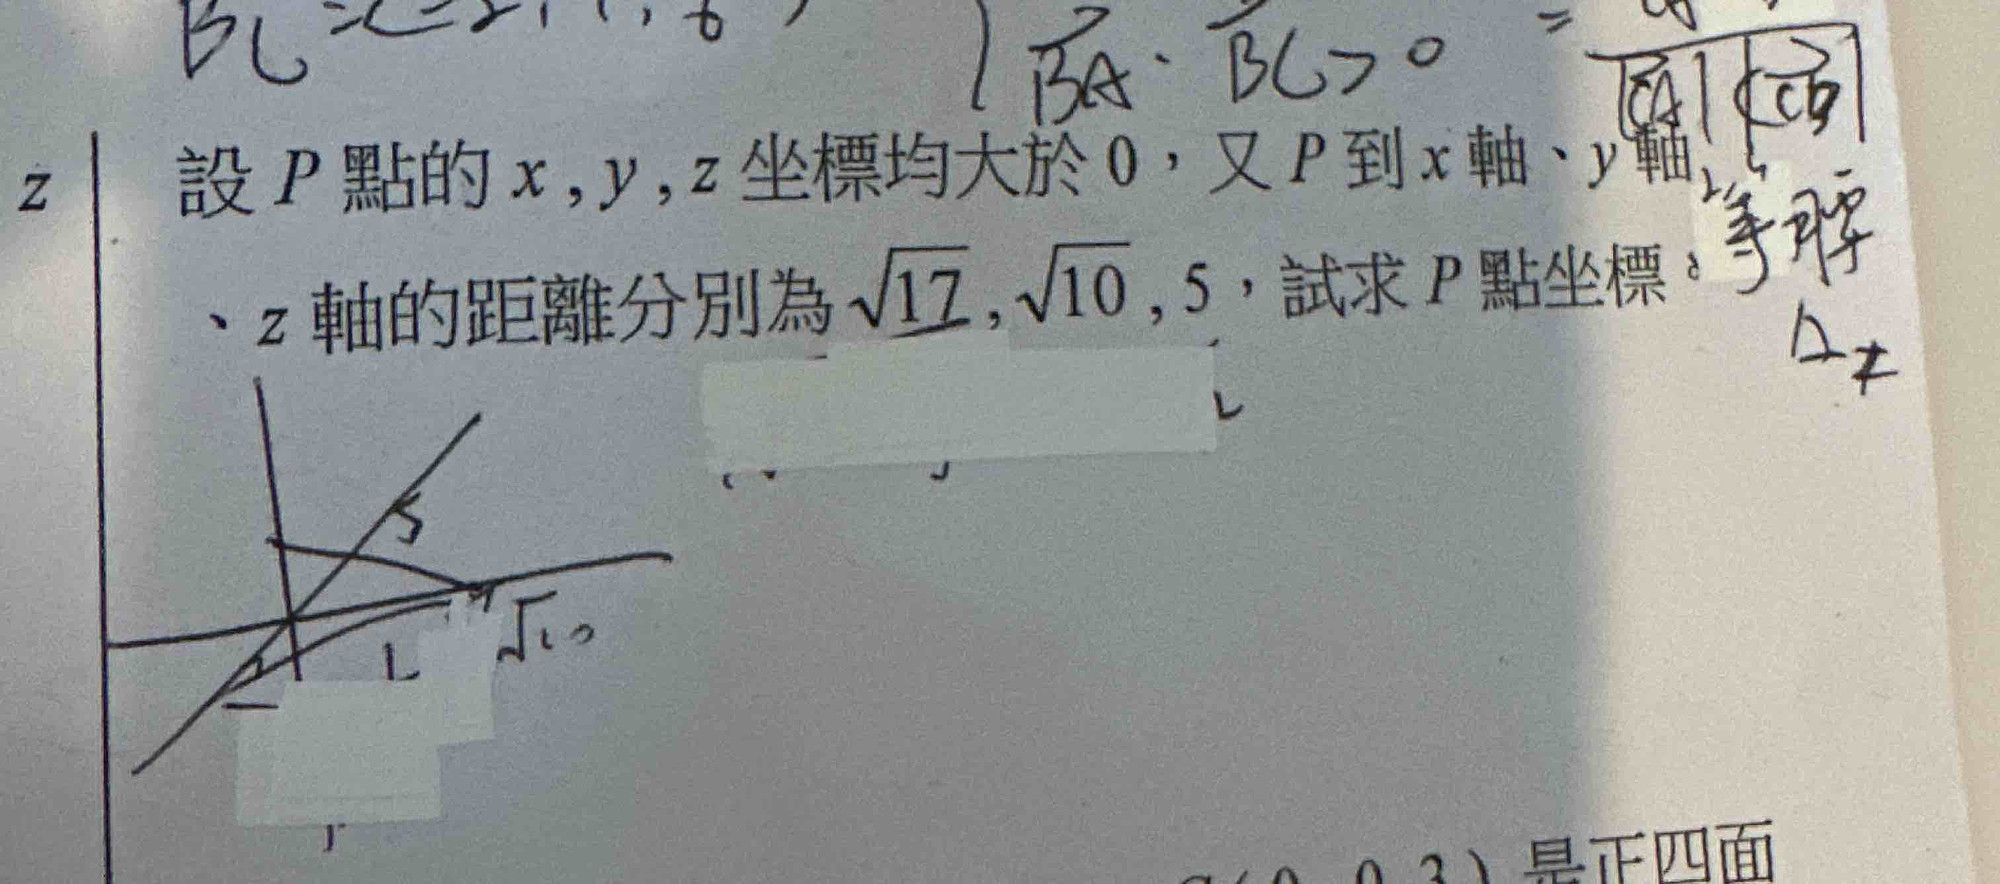 BA · BC > 0
|CA| |CB|
設 P 點的 x , y , z 坐標均大於 0,又 P 到 x 軸、y 軸
、z 軸的距離分別為 √17 , √10 , 5,試求 P 點坐標。
z
等腰
△
5
√10
( 0 , 0 , 3 ) 是正四面